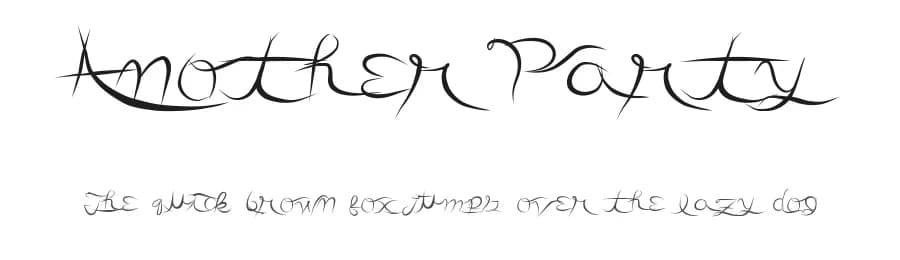 Another Party
The quick brown fox jumps over the lazy dog